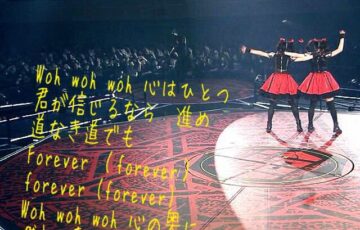 Woh woh woh 心はひとつ
君が信じるなら 進め
道なき道でも
Forever (forever)
forever (forever)
Woh woh woh 心の